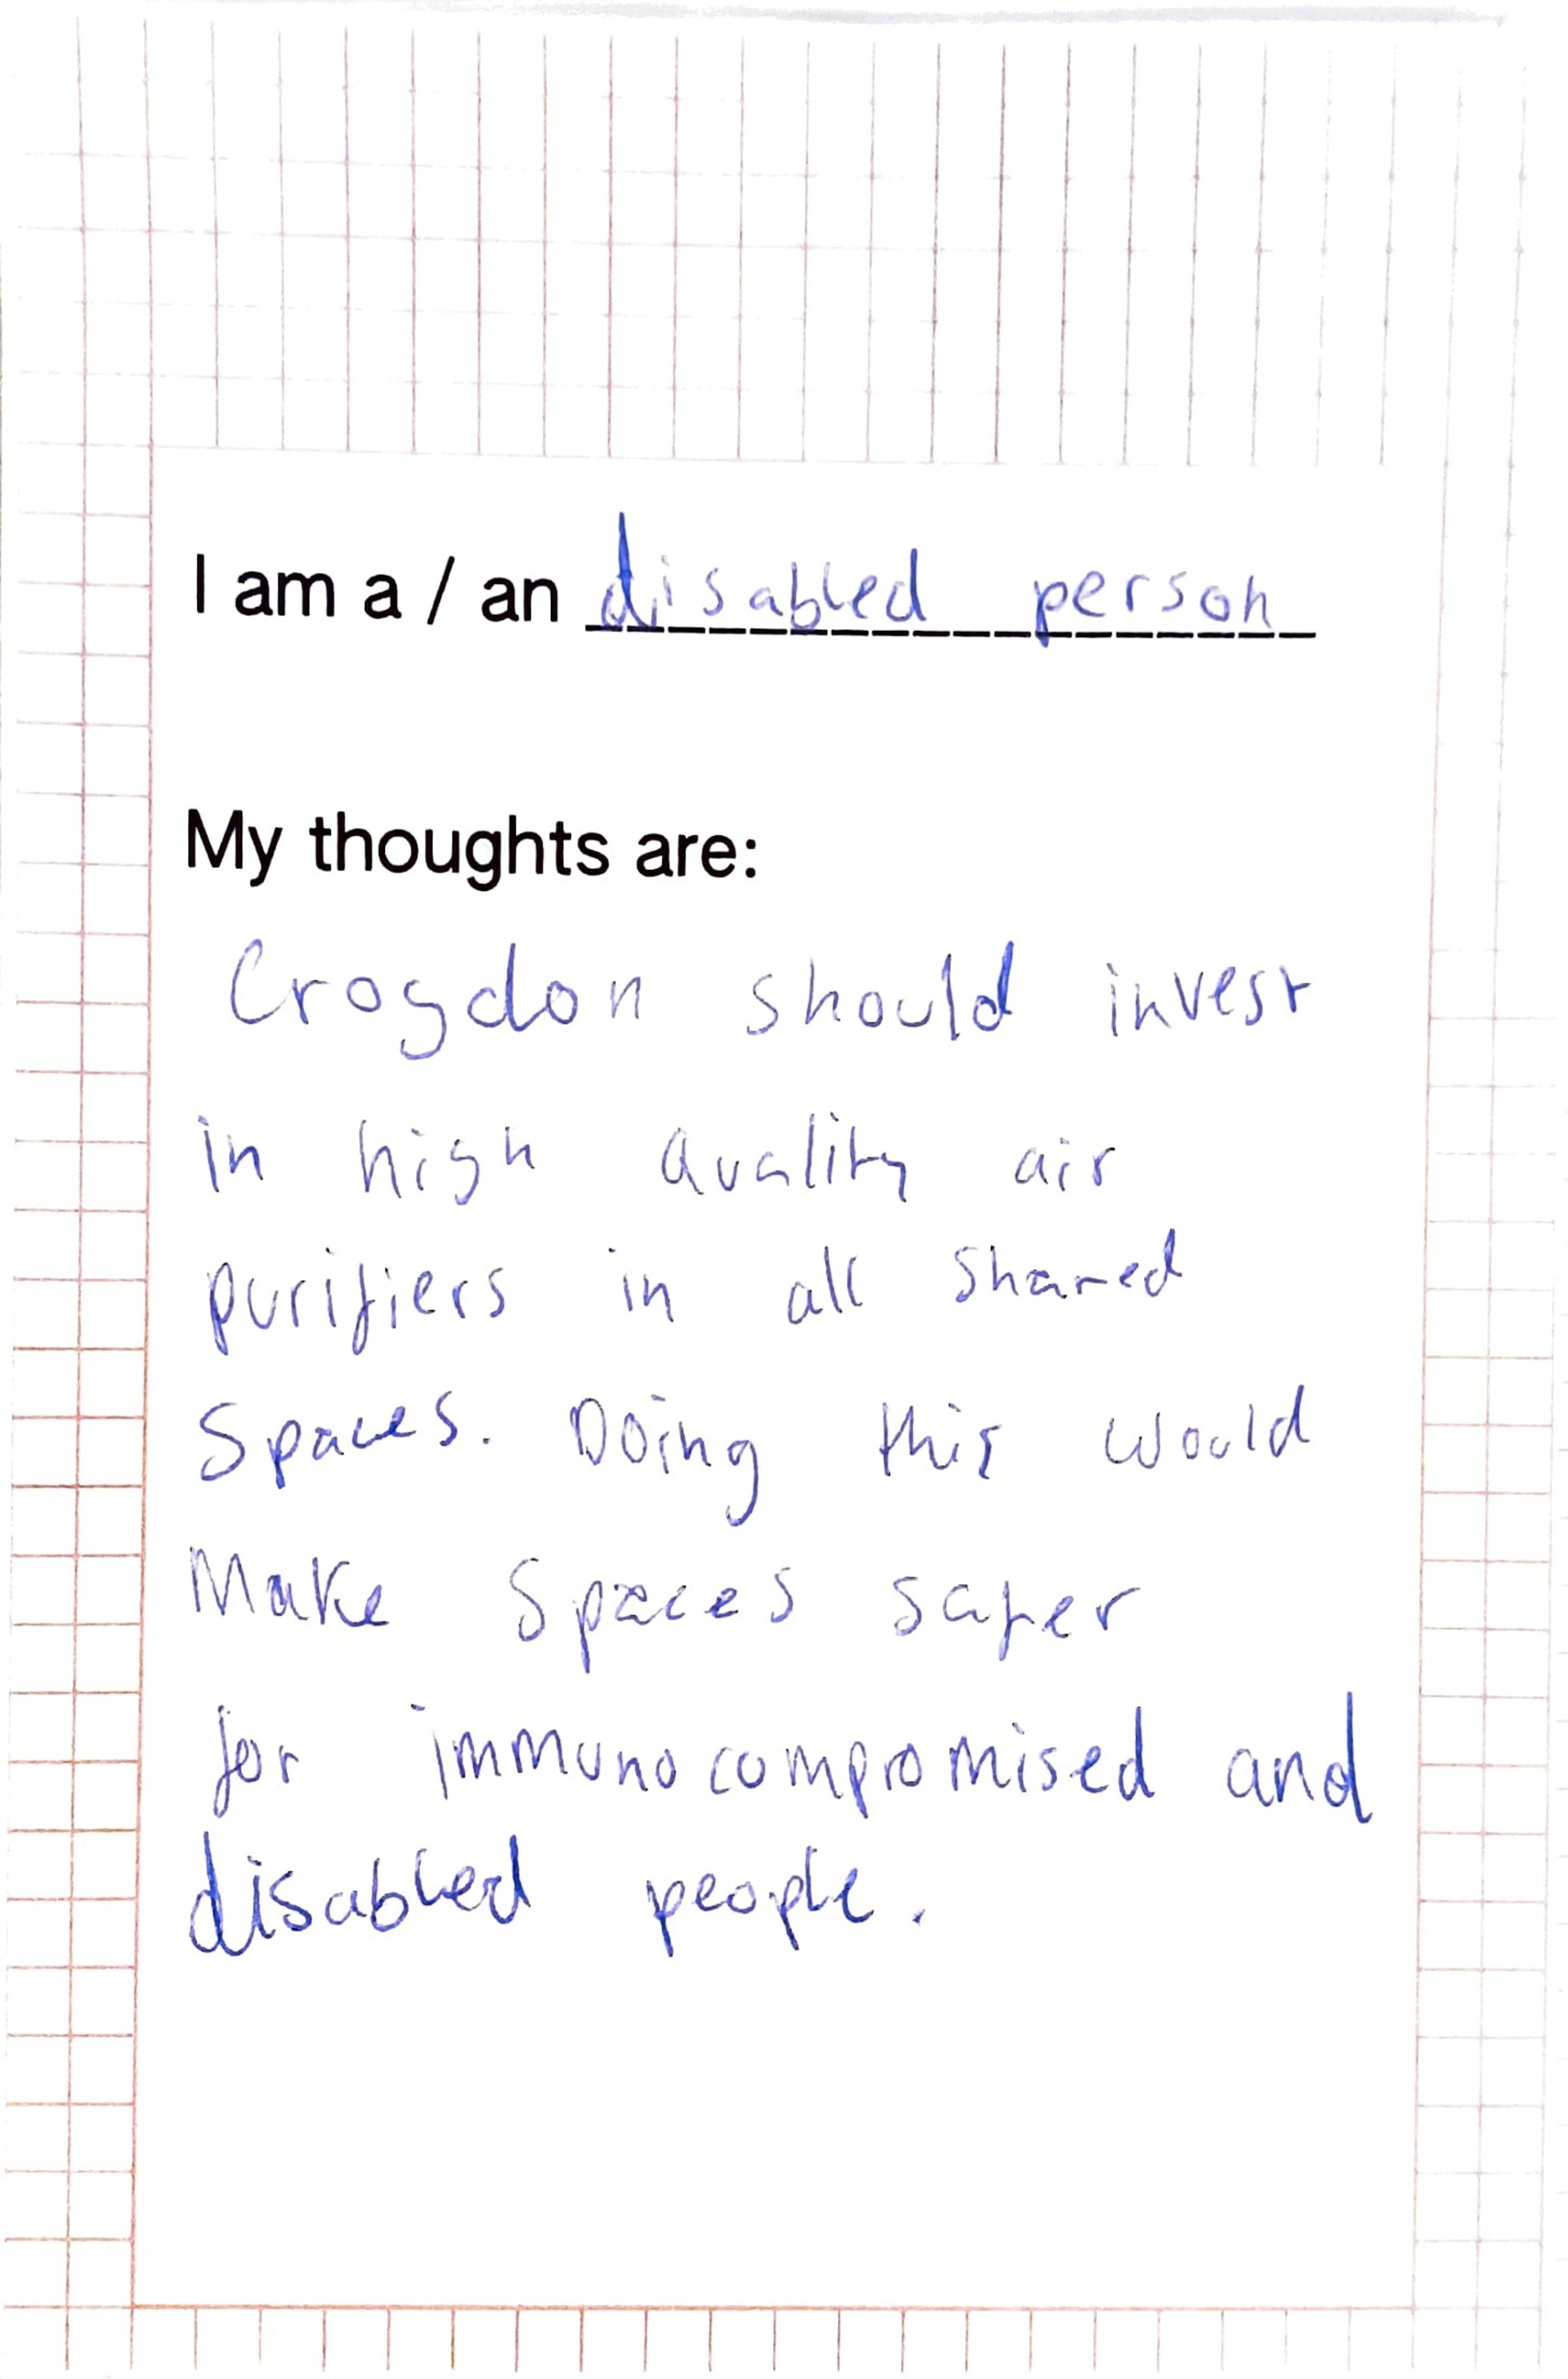 I am a / an disabled person
My thoughts are:
Croydon should invest
in high quality air
purifiers in all shared
spaces. Doing this would
Make spaces safer
for immunocompromised and
disabled people.